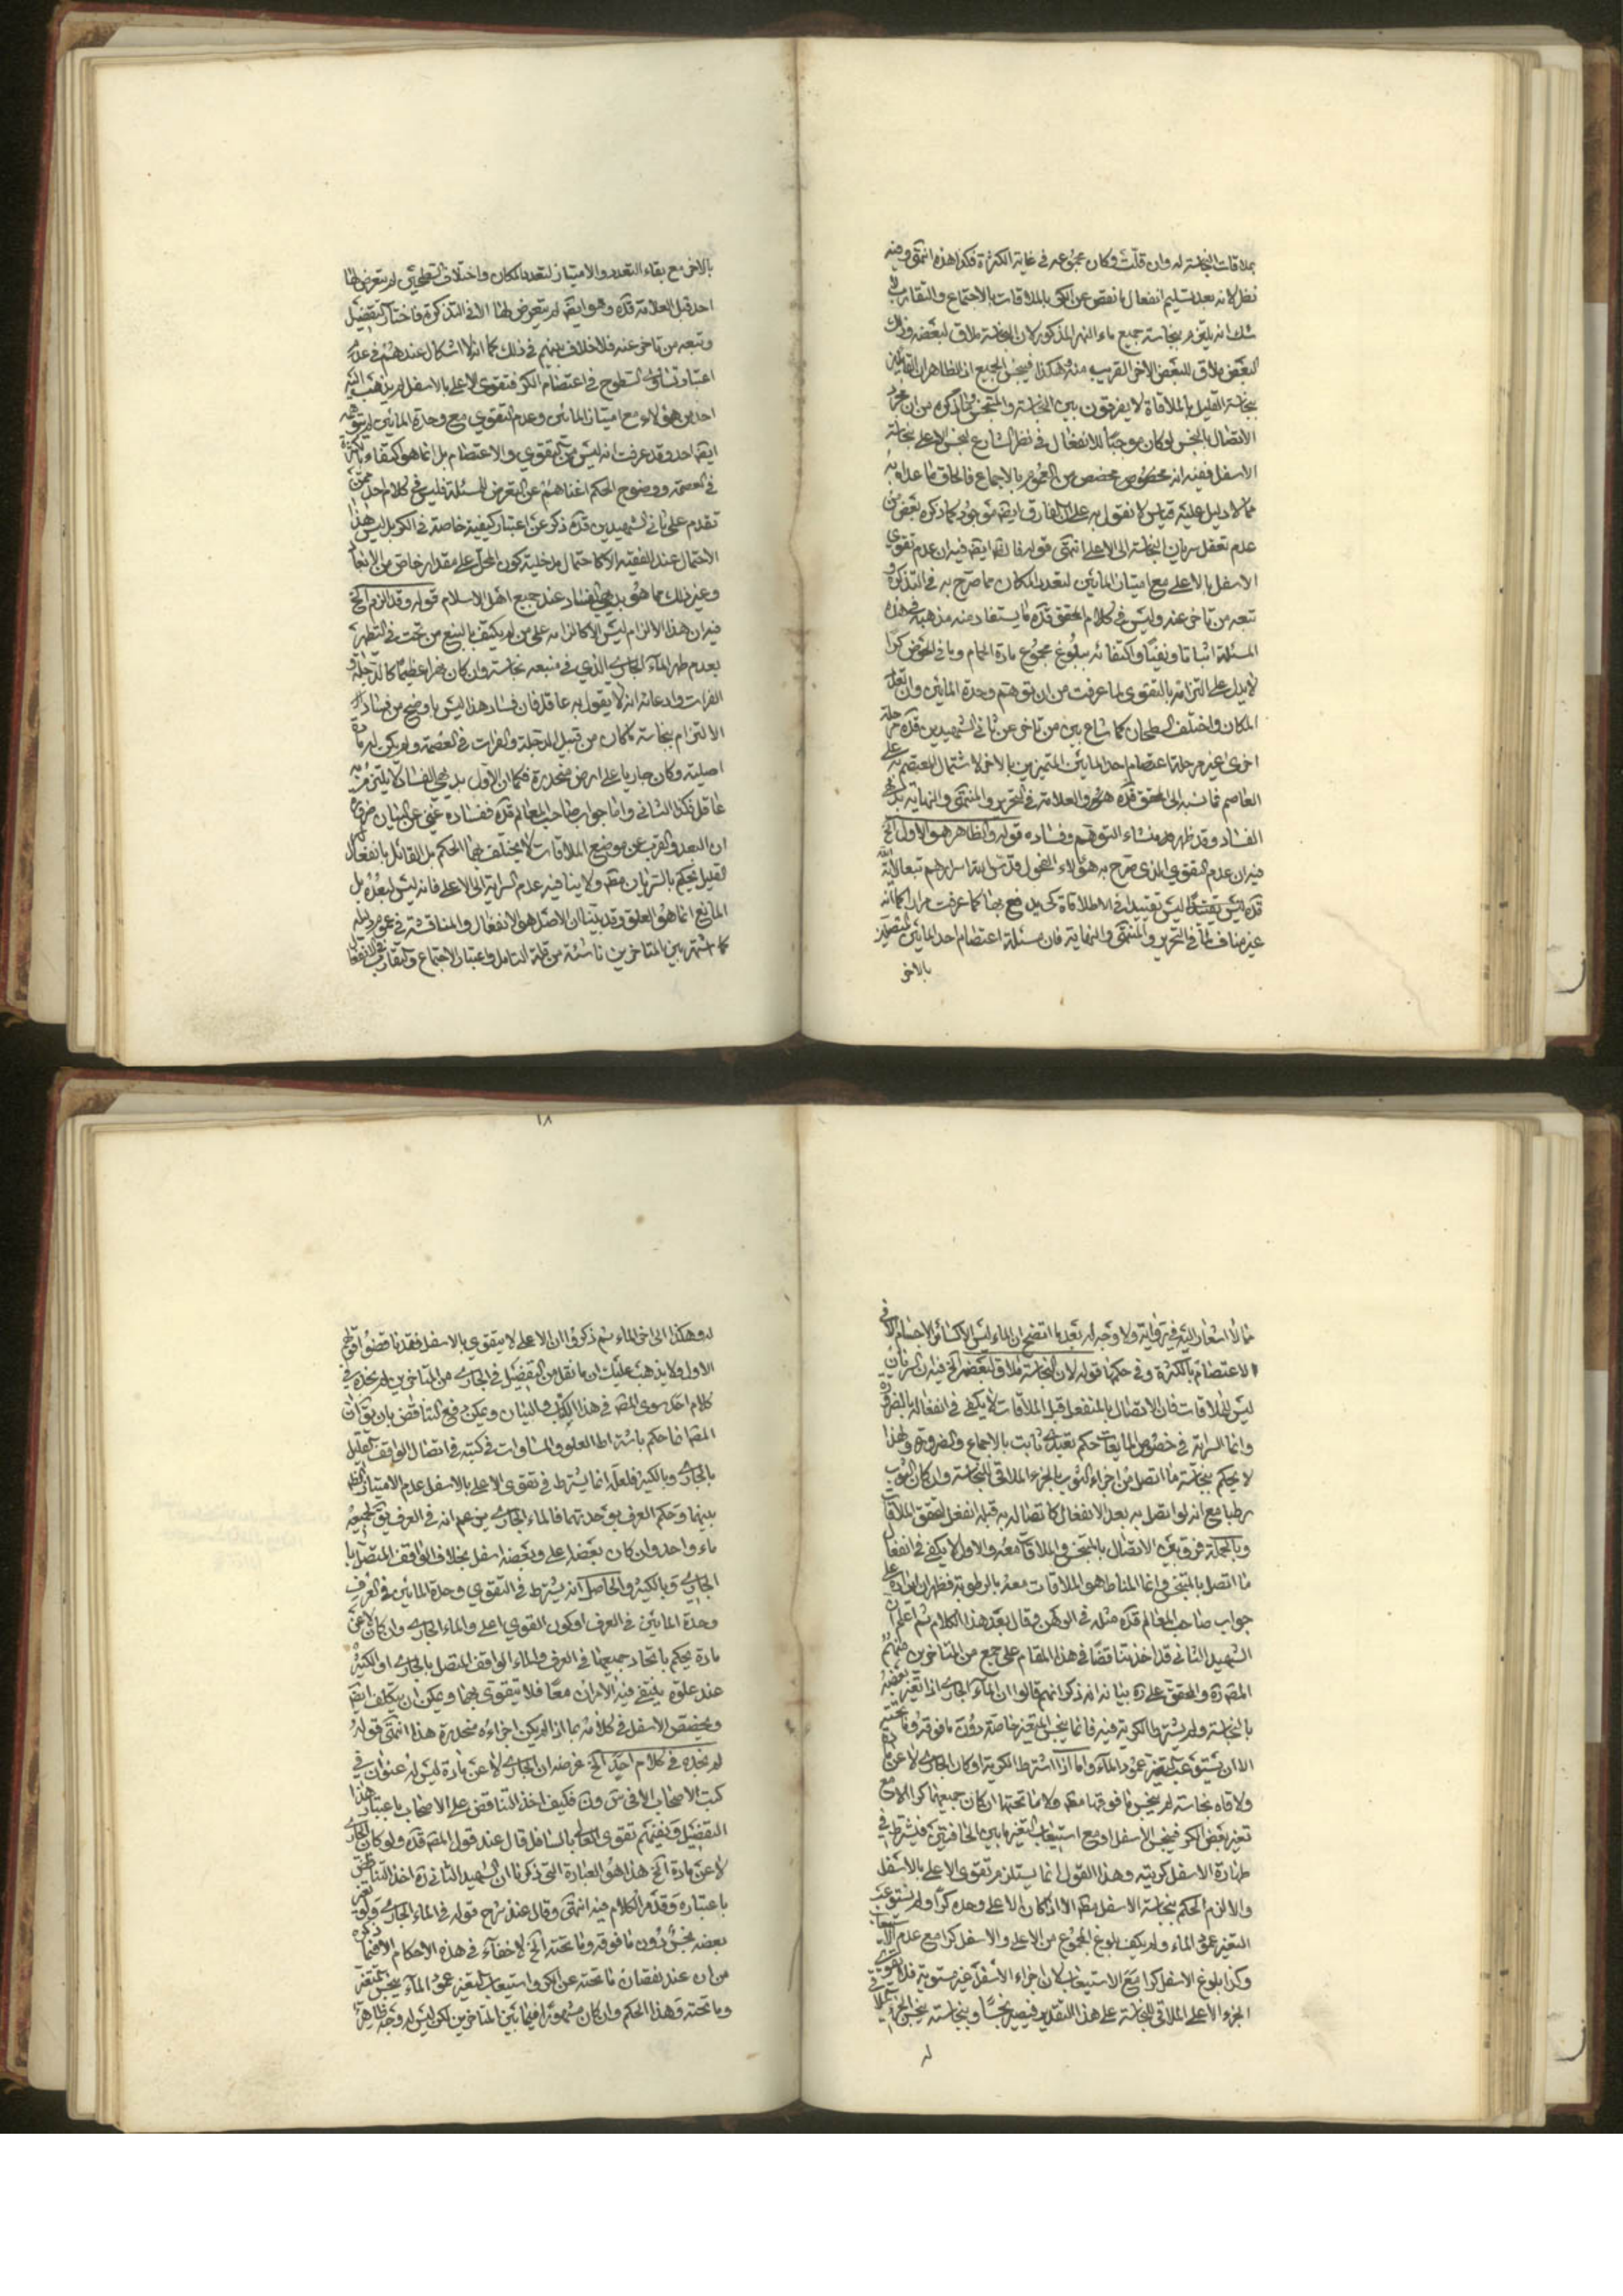 بملاقات النجاسة له وان قلت وكان مجموعه فى غاية الكثرة فكذا هذه انتهى وفيه
نظر لانه بعد تسليم انفعال ما نقص عن الكر بالملاقات بالاجتماع والتقارب
شك انه يلزم نجاسة جميع ماء النهر المذكور لان النجاسة ملاق لبعضه وذلك
البعض ملاق للبعض الاخر القريب منه وهكذا فينجس الجميع اذ الظاهر ان القائلين
بنجاسة القليل بالملاقاة لا يفرقون بين النجاسة والمتنجس وما ذكره من ان مجرد
الاتصال بالنجس لو كان موجبا للانفعال فى نظر الشارع لنجس الاعلى بنجاسة
الاسفل ففيه انه مخصوص مخصص من العموم بالاجماع فالحاق ما عداه به
مما لا دليل عليه قياس لا نقول به على ان الفارق ايضه موجود كما ذكره بعض من
عدم تعقل سريان النجاسة الى الاعلى انتهى قوله فالفه ايضه فيه ان عدم تقوى
الاسفل بالاعلى مع امتياز المائين لتعدد المكان مما صرح به فى التذكرة و
تبعه من تاخر عنه وليس فى كلام المحقق قده ما يستفاد منه مذهبه فى هذه
المسئلة اثباتا ونفيا واكتفائه ببلوغ مجموع مادة الحمام وما فى الحوض كرا
لا يدل على التزامه بالتقوى لما عرفت من ان توهم وحدة المائين وان تعدد
المكان واختلف السطحان كما شاع بين من تاخر عن ثانى الشهيدين قده مرحلة
اخرى غير مرحلة اعتصام احد المائين المتميزين بالاخر لاشتمال المعتصم به على
العاصم فما نسبه الى المحقق قده هنا والعلامة فى التحرير والمنتهى والنهاية بديهى
الفساد وقد ظهر منشاء التوهم وفساده قوله والظاهر هو الاول الخ
فيه ان عدم التقوى الذى صرح به هؤلاء الفحول قدس الله اسرارهم تبعا لاية الله
قده ليس تقييدا فى الاطلاقات كى يدفع بها كما عرفت مرارا كما انه
غير مناف لما فى التحرير والمنتهى والنهاية فان مسئلة اعتصام احد المائين المتميز
بالاخر
بالاخر مع بقاء التعدد والامتياز لتعدد المكان واختلاف السطحين لم يتعرض لها
احد قبل العلامة قده وهو ايضه لم يتعرض لها الا فى التذكرة فاختار التفضيل
وتبعه من تاخر عنه فلا خلاف بينهم فى ذلك كما انه لا اشكال عندهم فى عدم
اعتبار تساوى السطوح فى اعتصام الكر فتقوى الاعلى بالاسفل لم يذهب اليه
احد من هؤلاء مع امتياز المائين وعدم التقوى مع وحدة المائين لم يتوهمه
ايضه احد وقد عرفت انه ليس من التقوى والاعتصام بل انما هو اكتفاء بالكثرة
فى العصمة ووضوح الحكم اغناهم عن التعرض للمسئلة فليس فى كلام احد ممن
تقدم على ثانى الشهيدين قده ذكر عن اعتبار كيفية خاصة فى الكر بل ليس هذا
الاحتمال عند الفقيه الا كاحتمال مدخلية كون المحل على مقدار خاص من الارتفاع
وغير ذلك مما هو بديهى الفساد عند جميع اهل الاسلام قوله وقد الزم الخ
فيه ان هذا الالزام ليس الا كالزامه على من لم يكتف بالنبع من تحت فى التطهير
بعدم طهر الماء الجارى الذى فى منبعه نجاسة وان كان نهرا عظيما كالدجلة و
الفرات وادعائه انه لا يقول به عاقل فان فساد هذا ليس باوضح من فساد
الالتزام بنجاسة ما كان من قبيل الدجلة والفرات فى العصمة ولم يكن له مادة
اصلية وكان جاريا على ارض منحدرة فكما ان الاول بديهى الفساد لا يلتزم به
عاقل فكذا الثانى واما جواب صاحب المعالم قده ففساده غنى عن البيان ضرورة
ان البعد والقرب عن موضع الملاقات لا يختلف بهما الحكم بل القائل بانفعال
القليل يحكم بالسريان مطه ولا ينافيه عدم السراية الى الاعلى فانه ليس لبعده بل
المانع انما هو العلو وقد بينا ان الاصل هو الانفعال والمناقشة فى عموم ادلة
كما اشتهر بين المتاخرين ناشئة من قلة التامل واعتبار الاجتماع والتقارب فى الانفعال
١٨
مما لا اشعار اليه فى رواية ولا وجه له بعد ما اتضح ان الماء ليس الا كسائر الاجسام الا فى
الاعتصام بالكثرة وفى حكمها قوله لان النجاسة ملاق لبعضه الخ فيه ان السريان
ليس للملاقات فان الاتصال بالمنفعل قبل الملاقات لا يكفى فى انفعاله بالضرورة
وانما السراية فى خصوص المايعات حكم تعبدى ثابت بالاجماع والضرورة ولهذا
لا يحكم بنجاسة ما اتصل من اجزاء الثوب بالجزء الملاقى للنجاسة وان كان الثوب
رطبا مع انه لو اتصل به بعد الانفعال كاتصاله به قبله انفعل لتحقق الملاقات
وبالجملة فرق بين الاتصال بالمتنجس والملاقات معه والاول لا يكفى فى انفعال
ما اتصل بالمتنجس وانما المناط هو الملاقات معه بالرطوبة فظهر ان ايراده على
جواب صاحب المعالم قده مثله فى الوهن وقال بعد هذا الكلام ثم اعلم ان
الشهيد الثانى قد اخذ تناقضا فى هذا المقام على جمع من المتاخرين منهم
المصه ره والمحقق على ره بيانه انه ذكر انهم قالوا ان الماء الجارى اذا تغير بعضه
بالنجاسة ولم يشترط الكرية فيه فانما ينجس المتغير خاصة دون ما فوقه وما تحته
الا ان يستوعب التغير عمود الماء واما اذا اشترط الكرية او كان الجارى لا عن مادة
ولاقاه نجاسة لم ينجس ما فوقها مطه ولا ما تحتها ان كان جميعها كرا الا مع
تغير بعض الكر فينجس الاسفل او مع استيعاب التغير ما بين الحافتين فيشترط فى
طهارة الاسفل كريته وهذا القول انما يستلزم تقوى الاعلى بالاسفل
والا لزم الحكم بنجاسة الاسفل مطه الا اذا كان الاعلى وحده كرا ولم يستوعب
التغير عمود الماء ولم يكف بلوغ المجموع من الاعلى والاسفل كرا مع عدم الاستيعاب
وكذا بلوغ الاسفل كرا مع الاستيعاب لان اجزاء الاسفل غير مستوية فلا تقوى
الجزء الاعلى الملاقى للنجاسة على هذا التقدير فيصير نجسا وبنجاسته ينجس الجزء
له
له وهكذا الى اخر الماء ثم ذكروا ان الاعلى لا يتقوى بالاسفل فقد ناقضوا قولهم
الاول ولا يذهب عليك ان ما نقل من التفضيل فى الجارى من المتاخرين لم نجده فى
كلام احد سوى المصه فى هذا الكتاب والبيان ويمكن دفع التناقض بان يقه ان
المصه انما حكم باشتراط العلو والمساوات فى كتبه فى اتصال الواقف القليل
بالجارى وبالكثير فلعله انما يشترط فى تقوى الاعلى بالاسفل عدم الامتياز
بينهما وحكم العرف بوحدتهما فالماء الجارى يزعم انه فى العرف يقه لجميعه
ماء واحد وان كان بعضه اعلى وبعضه اسفل بخلاف الواقف المتصل با
الجارى وبالكثير والحاصل انه يشترط فى التقوى وحدة المائين فى العرف
وحدة المائين فى العرف او كون القوى اعلى والماء الجارى وان كان لا عن
مادة يحكم باتحاد جميعها فى العرف والماء الواقف المتصل بالجارى او الكثير
عند علوه ينتفى فيه الامران معا فلا يتقوى بهما ويمكن ان يتكلف ايضه
ويخصص الاسفل فى كلامه بما اذا لم يكن اجزاءه منحدرة هذا انتهى قوله
لم نجده فى كلام احد الخ غرضه ان الجارى لا عن مادة ليس له عنوان فى
كتب الاصحاب الا فى س ون فكيف اخذ التناقض على الاصحاب باعتبار هذا
التفضيل ونفيهم تقوى العالى بالسافل قال عند قول المصه قده ولو كان الجارى
لا عن مادة الخ هذا هو العبارة التى ذكرنا ان الشهيد الثانى ره اخذ التناقض
باعتباره وقد مر الكلام فيه انتهى وقال عند شرح قوله فى الماء الجارى ولو تغير
بعضه نجس دون ما فوقه وما تحته الخ لا خفاء فى هذه الاحكام الا فيما ذكره
من ان عند نقصان ما تحته عن الكر واستيعاب التغير عمود الماء ينجس المتغير
وما تحته وهذا الحكم وان كان مشهورا فيما بين المتاخرين لكن ليس له وجه ظاهر